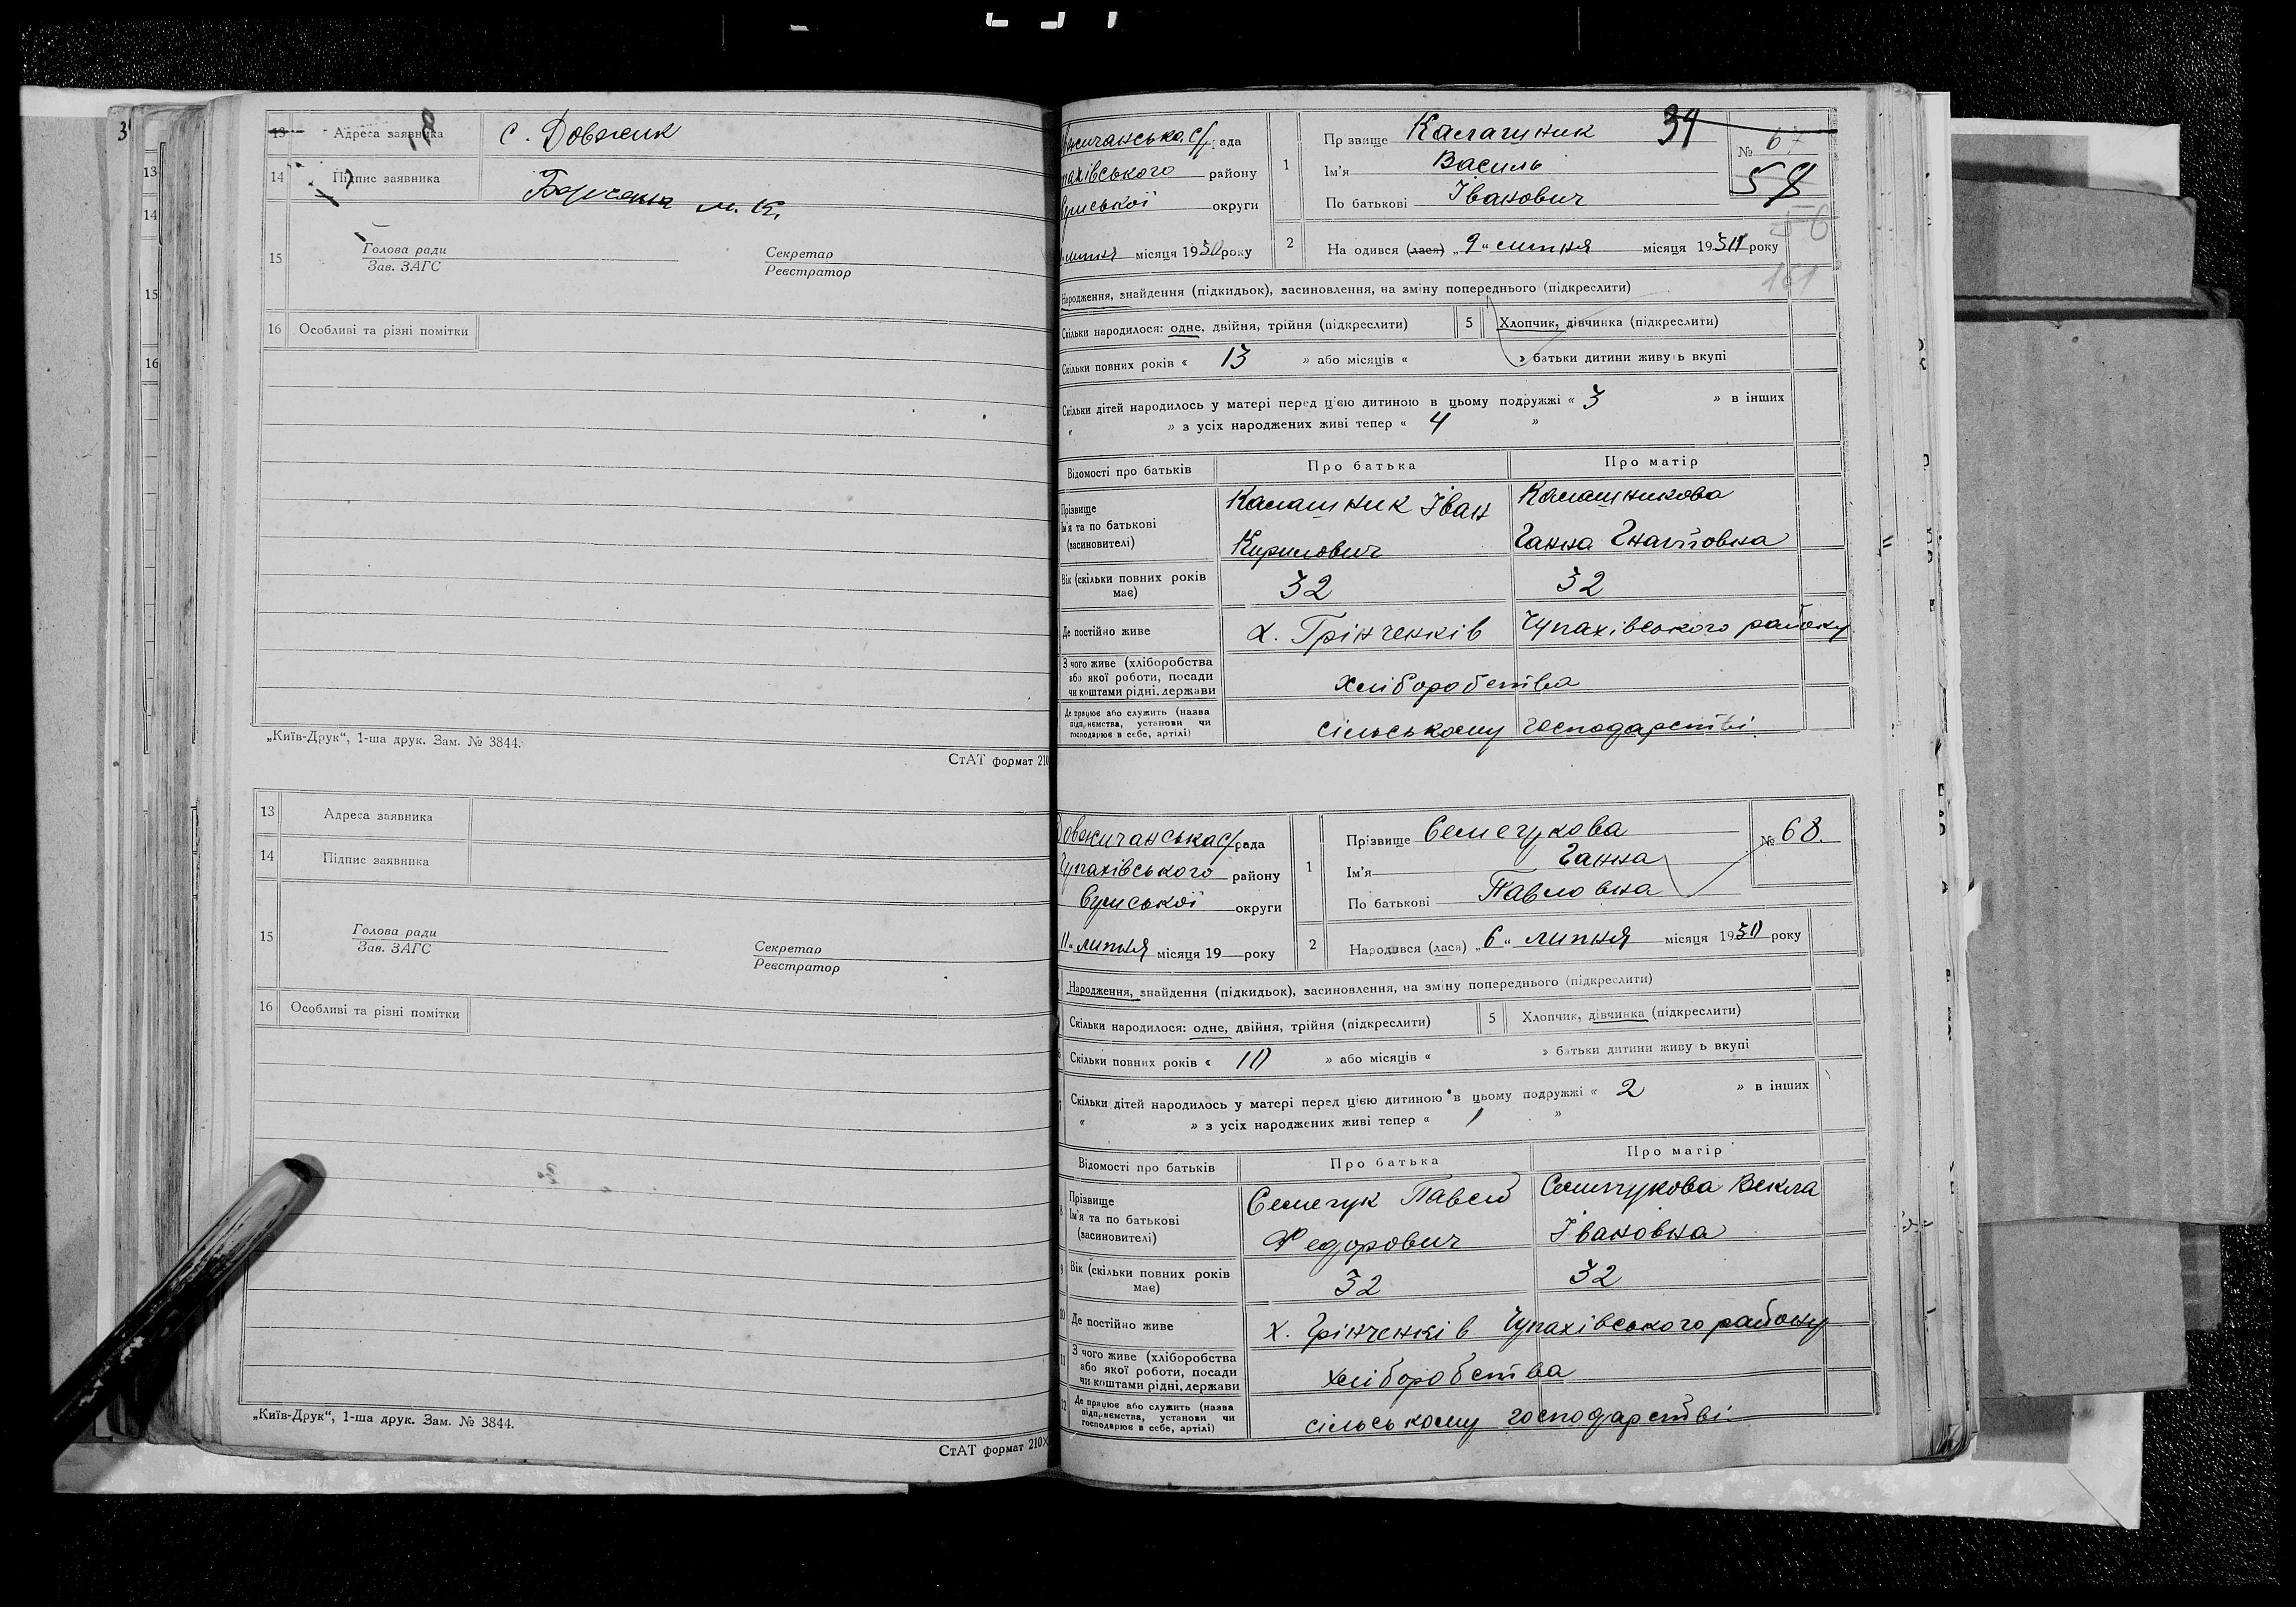 13 Адреса заявника с. Довжик
14 Підпис заявника
15 Голова ради
Зав. ЗАГС
Секретар
Реєстратор
16 Особливі та різні помітки
„Київ-Друк“, 1-ша друк. Зам. № 3844.
СтАТ формат 210
13 Адреса заявника
14 Підпис заявника
15 Голова ради
Зав. ЗАГС
Секретар
Реєстратор
16 Особливі та різні помітки
„Київ-Друк“, 1-ша друк. Зам. № 3844.
СтАТ формат 210×
району
округи
липня місяця 1930 року
1 Прізвище Калашник 34
Ім'я Василь
По батькові Іванович
№ 67
58
56
161
2 На одився (лася) „9“ липня місяця 1930 року
Народження, знайдення (підкидьок), засиновлення, на зміну попереднього (підкреслити)
Скільки народилося: одне, двійня, трійня (підкреслити) 5 Хлопчик, дівчинка (підкреслити)
Скільки повних років « 13 » або місяців « » батьки дитини живуь вкупі
Скільки дітей народилось у матері перед цією дитиною в цьому подружжі « 3 » в інших
« » з усіх народжених живі тепер « 4 »
Відомості про батьків Про батька Про матір
Прізвище
Ім'я та по батькові
(засиновителі)
Калашник Іван
Кирилович
Калашникова
Ганна Гнатовна
Вік (скільки повних років
має) 32 32
Де постійно живе х. Грінченків Чупахівського району
З чого живе (хліборобства
або якої роботи, посади
чи коштами рідні, держави
хліборобства
Де працює або служить (назва
підприємства, установи чи
господарює в себе, артілі)
сільському господарстві.
Довжичанська с/рада
Чупахівського району
Сумської округи
11“ липня місяця 19 року
1 Прізвище Семечукова
Ім'я Ганна
По батькові Павловна
№ 68.
2 Народився (лася) „6“ липня місяця 1930 року
Народження, знайдення (підкидьок), засиновлення, на зміну попереднього (підкреслити)
Скільки народилося: одне, двійня, трійня (підкреслити) 5 Хлопчик, дівчинка (підкреслити)
6 Скільки повних років « 10 » або місяців « » батьки дитини живуь вкупі
7 Скільки дітей народилось у матері перед цією дитиною в цьому подружжі « 2 » в інших
« » з усіх народжених живі тепер « 1 »
Відомості про батьків Про батька Про матір
8 Прізвище
Ім'я та по батькові
(засиновителі)
Семечук Павел
Федорович
Семечукова Векла
Івановна
9 Вік (скільки повних років
має) 32 32
10 Де постійно живе х. Грінченків Чупахівського району
11 З чого живе (хліборобства
або якої роботи, посади
чи коштами рідні, держави
хліборобства
12 Де працює або служить (назва
підприємства, установи чи
господарює в себе, артілі)
сільському господарстві.